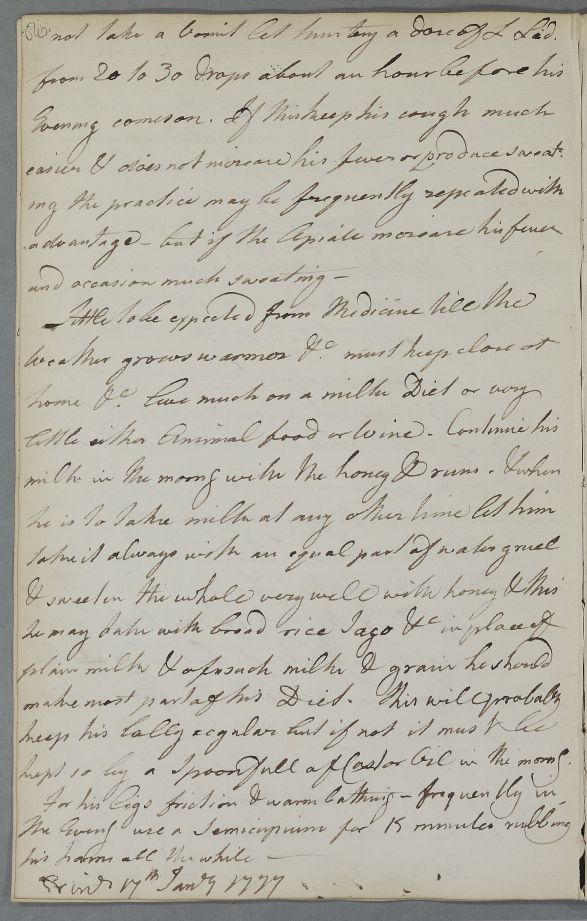 not take a vomit let him try a dose of L Lad.
from 20 to 30 drops about an hour before his
Evening comes on. If this keep his cough much
easier & does not increase his fever or produce sweat-
ing the practice may be frequently repeated with
advantage - but if the Opiate increase his fever
and occasion much sweating -
Little to be expected from Medicine till the
weather grows warmer &c. must keep close at
home &c. Live much on a milk Diet or very
little either Animal food or Wine. Continue his
milk in the morng with the honey & rum. & when
he is to take milk at any other time let him
take it always with an equal part of water gruel
& sweeten the whole very well with honey & this
he may take with bread rice Sago &c in place of
plain milk & of such milk & grain he should
make most part of his Diet. This will probably
keep his belly regular but if not it must be
kept so by a Spoonfull of Castor Oil in the morng.
For his legs friction & warm bathing - frequently in
the Eveng use a Semicupium for 15 minutes rubbing
his hams all the while -
17th Jany 1777